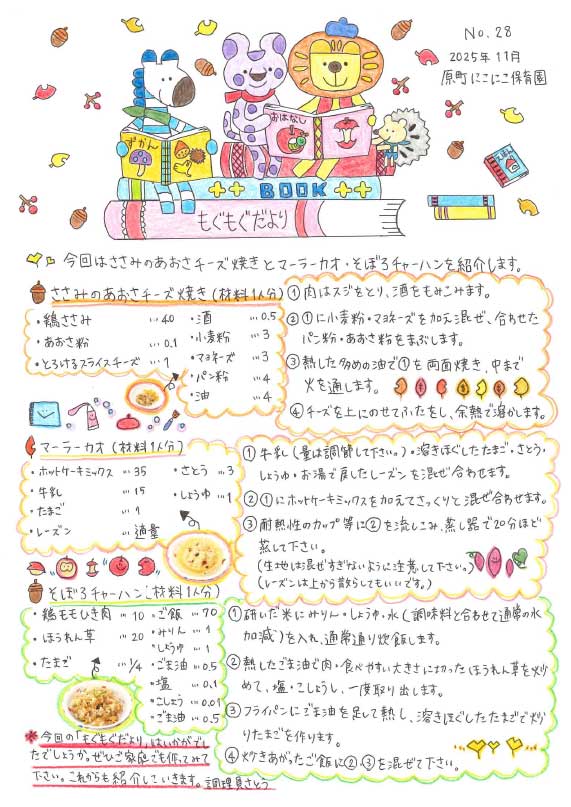 No. 28
2025年 11月
原町にこにこ保育園
ずかん
おはなし
BOOK
もぐもぐだより
今回はささみのあおさチーズ焼きとマーラーカオ・そぼろチャーハンを紹介します。
ささみのあおさチーズ焼き(材料1人分)
・鶏ささみ … 40
・あおさ粉 … 0.1
・とろけるスライスチーズ … 1
・酒 … 0.5
・小麦粉 … 3
・マヨネーズ … 3
・パン粉 … 4
・油 … 4
①肉はスジをとり、酒をもみこみます。
②①に小麦粉・マヨネーズを加え混ぜ、合わせた
パン粉・あおさ粉をまぶします。
③熱した多めの油で①を両面焼き、中まで
火を通します。
④チーズを上にのせてふたをし、余熱で溶かします。
マーラーカオ(材料1人分)
・ホットケーキミックス … 35
・牛乳 … 15
・たまご … 1
・レーズン … 適量
・さとう … 3
・しょうゆ … 1
①牛乳(量は調節して下さい。)・溶きほぐしたたまご・さとう・
しょうゆ・お湯で戻したレーズンを混ぜ合わせます。
②①にホットケーキミックスを加えてさっくりと混ぜ合わせます。
③耐熱性のカップ等に②を流しこみ、蒸し器で20分ほど
蒸して下さい。
(生地は混ぜすぎないように注意して下さい。)
(レーズンは上から散らしてもいいです。)
そぼろチャーハン(材料1人分)
・鶏ももひき肉 … 10
・ほうれん草 … 20
・たまご … 1/4
・ご飯 … 70
・みりん … 1
・しょうゆ … 1
・ごま油 … 0.5
・塩 … 0.1
・こしょう … 0.01
・ごま油 … 0.5
①研いだ米にみりん・しょうゆ・水(調味料と合わせて通常の水
加減)を入れ、通常通り炊飯します。
②熱したごま油で肉・食べやすい大きさに切ったほうれん草を炒
めて、塩・こしょうし、一度取り出します。
③フライパンにごま油を足して熱し、溶きほぐしたたまごで炒
りたまごを作ります。
④炊きあがったご飯に②③を混ぜて下さい。
*今回の「もぐもぐだより」はいかがでし
たでしょうか。ぜひご家庭でも作ってみて
下さい。これからも紹介していきます。調理員さとう